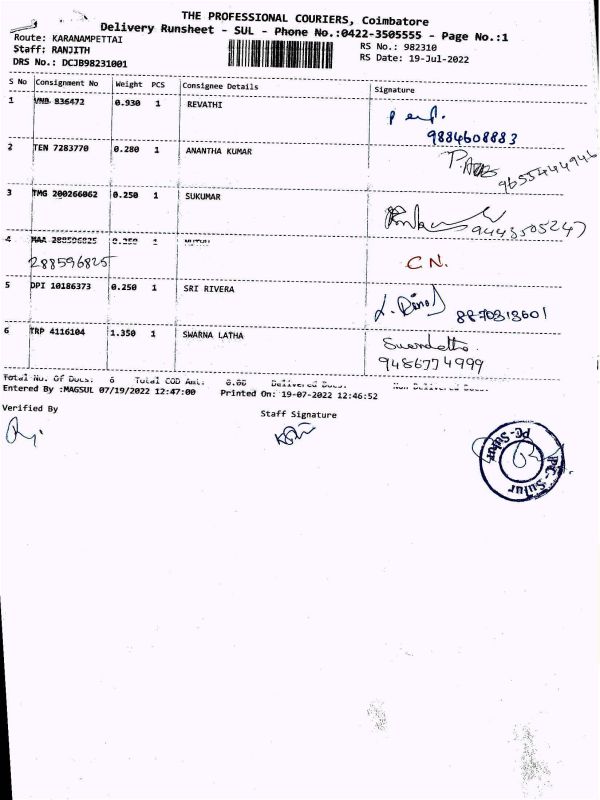 THE PROFESSIONAL COURIERS, Coimbatore
Delivery Runsheet - SUL - Phone No.:0422-3505555 - Page No.:1
Route: KARANAMPETTAI RS No.: 982310
Staff: RANJITH RS Date: 19-Jul-2022
DRS No.: DCJB98231001
S No Consignment No Weight PCS Consignee Details Signature
1 VNB 836472 0.930 1 REVATHI
9884608883
2 TEN 7283770 0.280 1 ANANTHA KUMAR
9655444946
3 TMG 200266062 0.250 1 SUKUMAR
9443505247
4 MAA 288596825 0.250 1 MUTHU
288596825 C.N.
5 DPI 10186373 0.250 1 SRI RIVERA
8870313601
6 TRP 4116104 1.350 1 SWARNA LATHA
9486774999
Total No. Of Docs: 6 Total COD Amt: 0.00 Delivered Docs: Non Delivered Docs:
Entered By :MAGSUL 07/19/2022 12:47:00 Printed On: 19-07-2022 12:46:52
Verified By Staff Signature
PC-Sulur
PC-Sulur